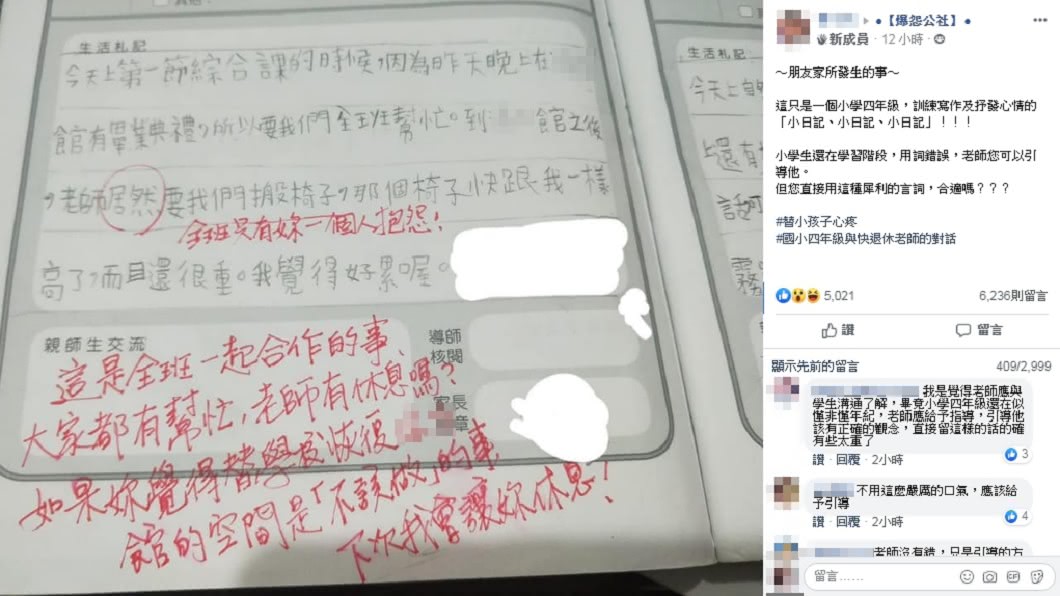 生活札記
今天上第一節綜合課的時候，因為昨天晚上在
館有畢業典禮，所以要我們全班幫忙。到 館之後
，老師居然要我們搬椅子，那個椅子快跟我一樣
全班沒有妳一個人抱怨！
高了，而且還很重。我覺得好累喔。
親師生交流
導師
核閱
家長
章
這是全班一起合作的事、
大家都有幫忙，老師有休息嗎？
如果妳覺得替學校恢復
館的空間是「不該做」的事
下次我會讓妳休息！
生活札記
今天上
上還有
【爆怨公社】
新成員 · 12 小時
～朋友家所發生的事～
這只是一個小學四年級，訓練寫作及抒發心情的
「小日記、小日記、小日記」！！！
小學生還在學習階段，用詞錯誤，老師您可以引
導他。
但您直接用這種犀利的言詞，合適嗎？？？
#替小孩子心疼
#國小四年級與快退休老師的對話
5,021
6,236則留言
讚
留言
顯示先前的留言
409/2,999
我是覺得老師應與
學生溝通了解，畢竟小學四年級還在似
懂非懂年紀，老師應給予指導，引導他
該有正確的觀念，直接留這樣的話的確
有些太重了
讚 · 回覆 · 2小時
3
不用這麼嚴厲的口氣，應該給
予引導
讚 · 回覆 · 2小時
4
老師沒有錯，只是引導的方
留言......